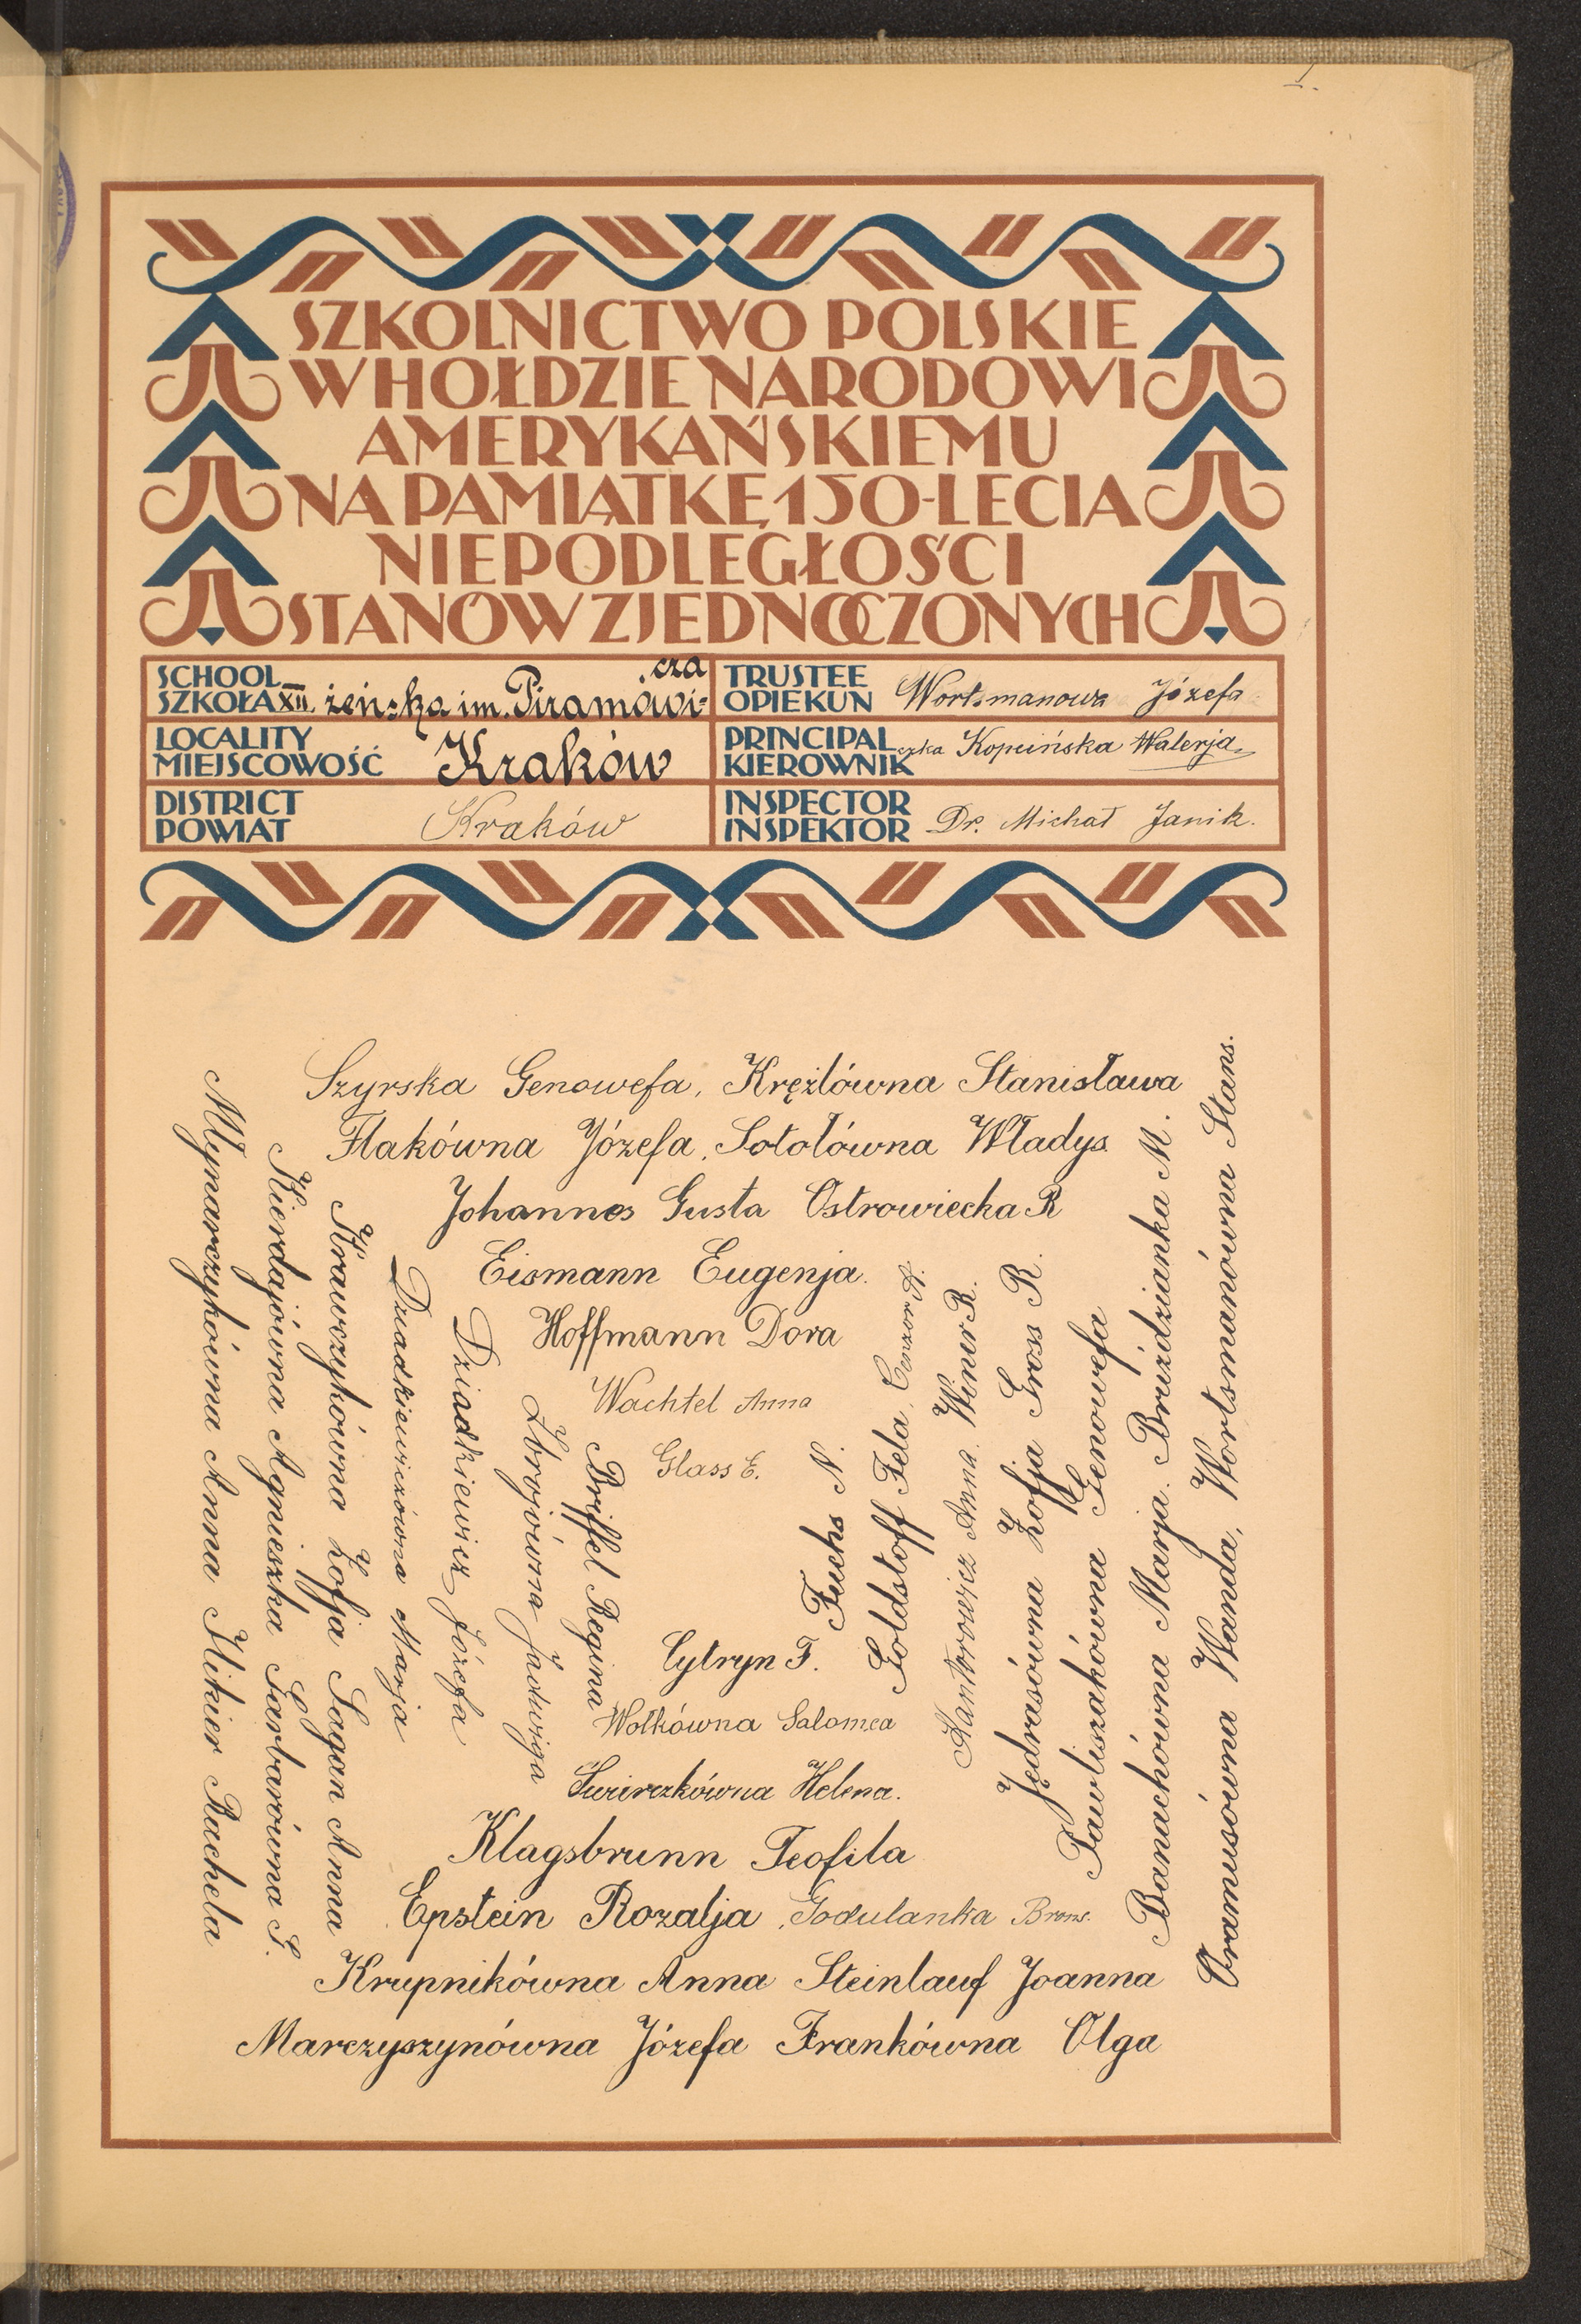 I.
SZKOLNICTWO POLSKIE
W HOŁDZIE NARODOWI
AMERYKAŃSKIEMU
NA PAMIĄTKĘ 150-LECIA
NIEPODLEGŁOŚCI
STANÓW ZJEDNOCZONYCH
SCHOOL
SZKOŁA XII. żeńska im. Piramowi=cza
LOCALITY
MIEJSCOWOŚĆ Kraków
DISTRICT
POWIAT Kraków
TRUSTEE
OPIEKUN Wortsmanowa Józefa
PRINCIPAL
KIEROWNIKczka Kopcińska Walerja
INSPECTOR
INSPEKTOR Dr. Michał Janik.
Szyrska Genowefa, Krężlówna Stanisława
Flakówna Józefa, Sotołówna Władys.
Johannes Gusta Ostrowiecka R
Eismann Eugenja.
Hoffmann Dora
Wachtel Anna
Glass E.
Młynarczykówna Anna Hikier Rachela
Kierdajówna Agnieszka Garbarówna S.
Krawczykówna Zofja Sagan Anna
Dziadkiewiczówna Marja
Dziadkiewicz Józefa
Zbrojówna Jadwiga
Briffel Regina
Fuchs N.
Goldstoff Fela, Cenzor A.
Kantorowicz Anna. Winir R.
Jędrasówna Zofja Gross R.
Pawliszakówna Genowefa
Banachówna Marja. Bruździanka M.
Oramusówna Wanda, Wortsmanówna Stans.
Cytryn F.
Wołkówna Salomea
Świerzkówna Helena.
Klagsbrunn Teofila
Epstein Rozalja, Godulanka Bron.
Krupnikówna Anna Steinlauf Joanna
Marczyszynówna Józefa Frankówna Olga